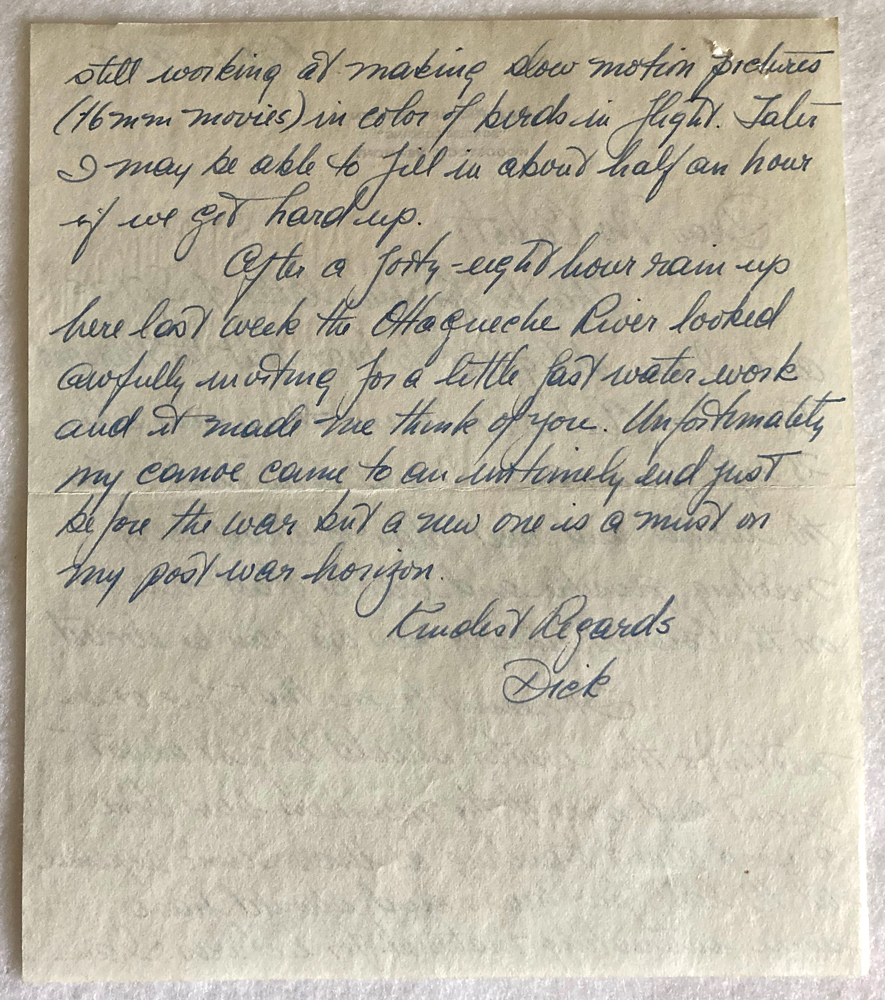 still working at making slow motion pictures
(16mm movies) in color of birds in flight. Later
I may be able to fill in about half an hour
if we get hard up.
After a forty-eight hour rain up
here last week the Ottaqueche River looked
awfully inviting for a little fast water work
and it made me think of you. Unfortunately
my canoe came to an untimely end just
before the war but a new one is a must on
my post war horizon.
Kindest Regards
Dick